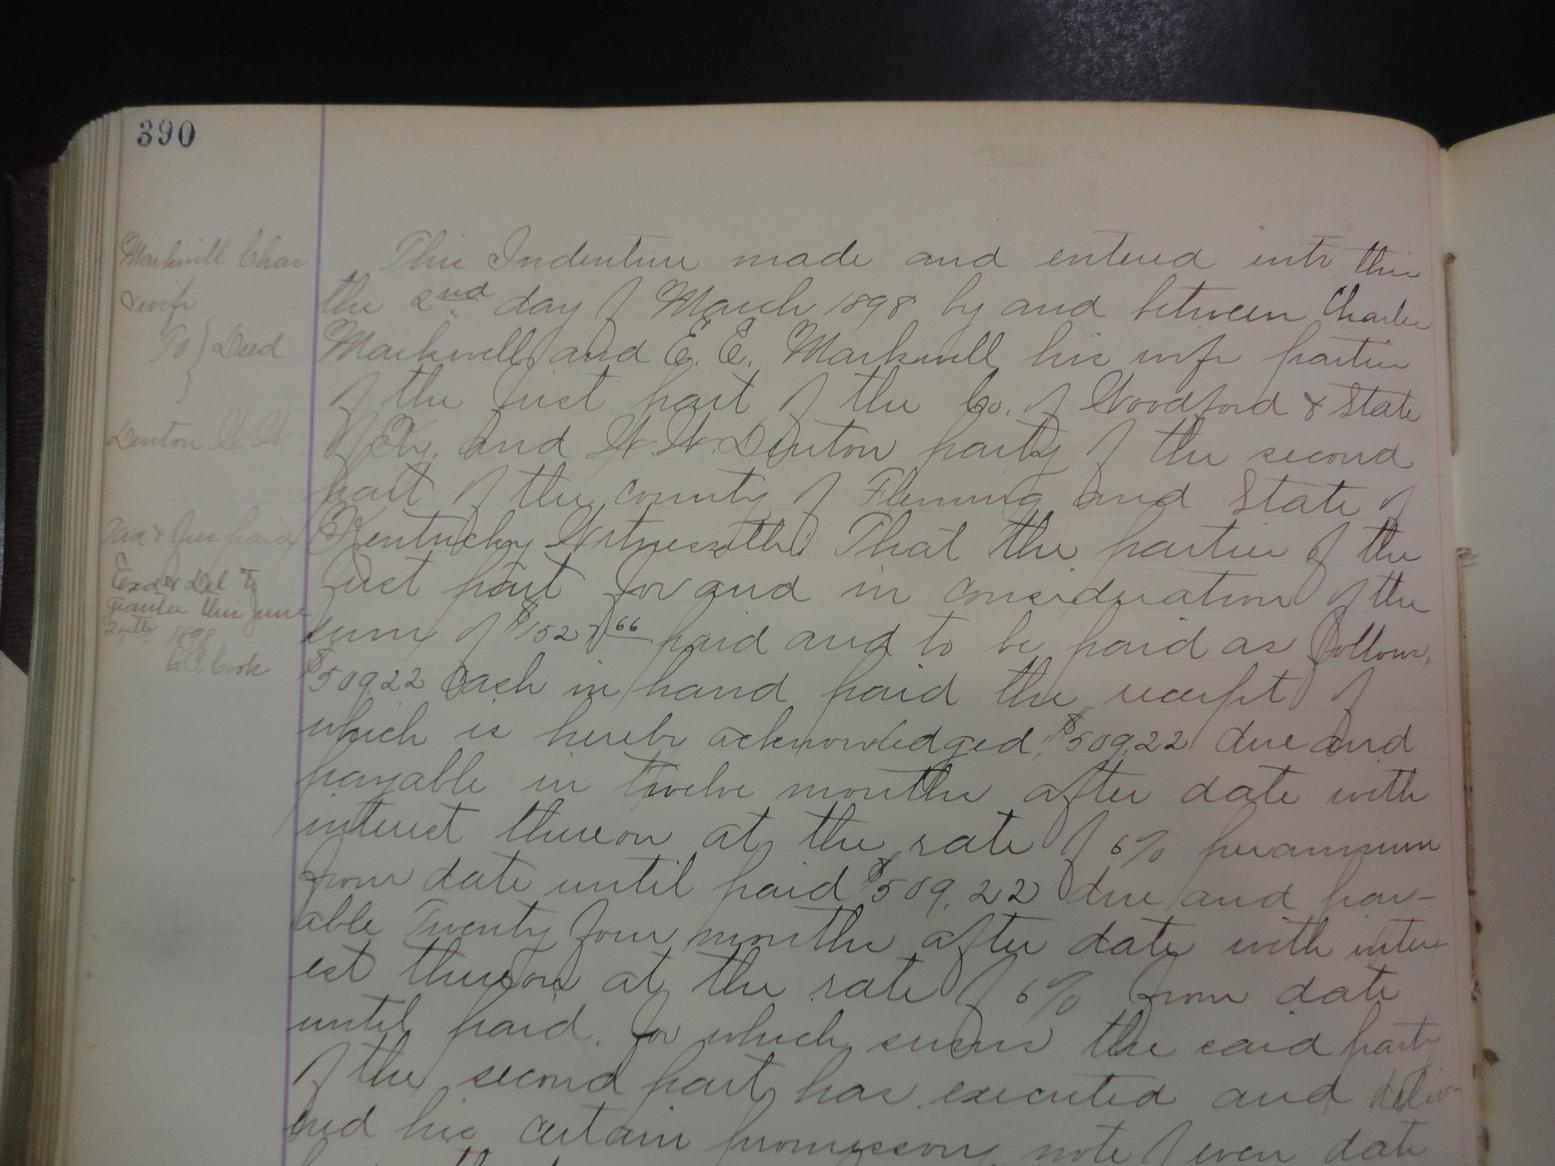 390
Markwell Chas
& wife
To } Deed
Denton W. W.
Tax & fees paid
Exd & Del to
grantee this June
24th 1898
Cook
This Indenture made and entered into this
the 2nd day of March 1898 by and between Charles
Markwell and E. E. Markwell his wife parties
of the first part of the Co. of Woodford & State
of Ky. and W. W. Denton party of the second
part of the county of Fleming and State of
Kentucky Witnesseth: That the parties of the
first part for and in consideration of the
sum of $1527 66 paid and to be paid as follows,
$509.22 Cash in hand paid the receipt of
which is hereby acknowledged, $509.22 due and
payable in twelve months after date with
interest thereon at the rate of 6% per annum
from date until paid $509.22 due and pay-
able Twenty four months after date with inter
est thereon at the rate of 6% from date
until paid. for which sums the said party
of the second part has executed and deliv-
ered his certain promissory note of even date